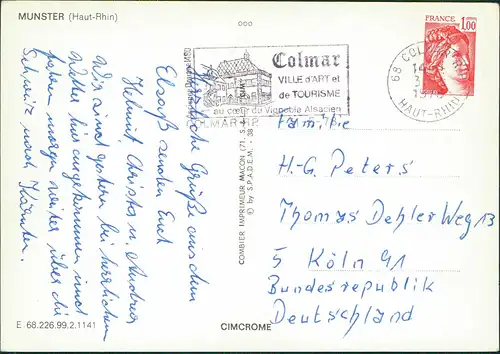 MUNSTER (Haut-Rhin)
Colmar
VILLE d'ART et
de TOURISME
au cœur du Vignoble Alsacien
COLMAR RP
68 COLMAR
HAUT-RHIN
FRANCE
1,00
Herzliche Grüße aus dem
Elsaß senden Euch
Helmut, Christa u. Andrea
Wir sind gestern bei herrlichem
Wetter hier angekommen und
fahren morgen weiter über die
Schweiz nach Kärnten.
COMBIER IMPRIMEUR MACON (71, S.
© by S.P.A.D.E.M. 38
Familie
H.-G. Peters
Thomas Dehler Weg 13
5 Köln 91
Bundesrepublik
Deutschland
E. 68.226.99.2.1141
CIMCROME